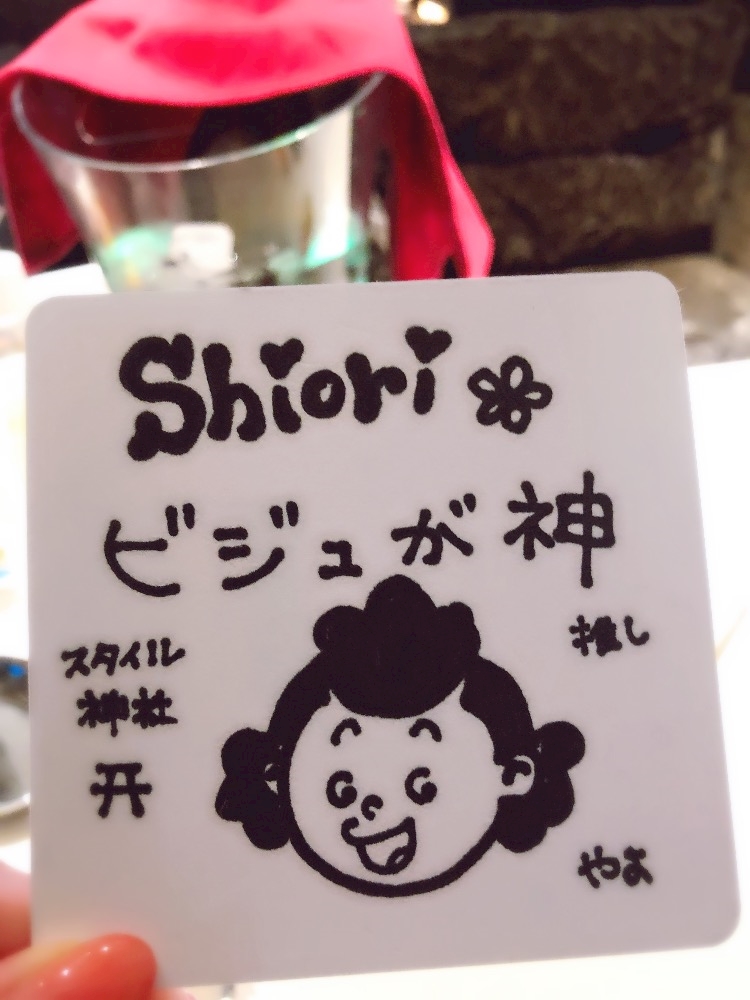 Shiori
ビジュが神
スタイル
神社
推し
やよ